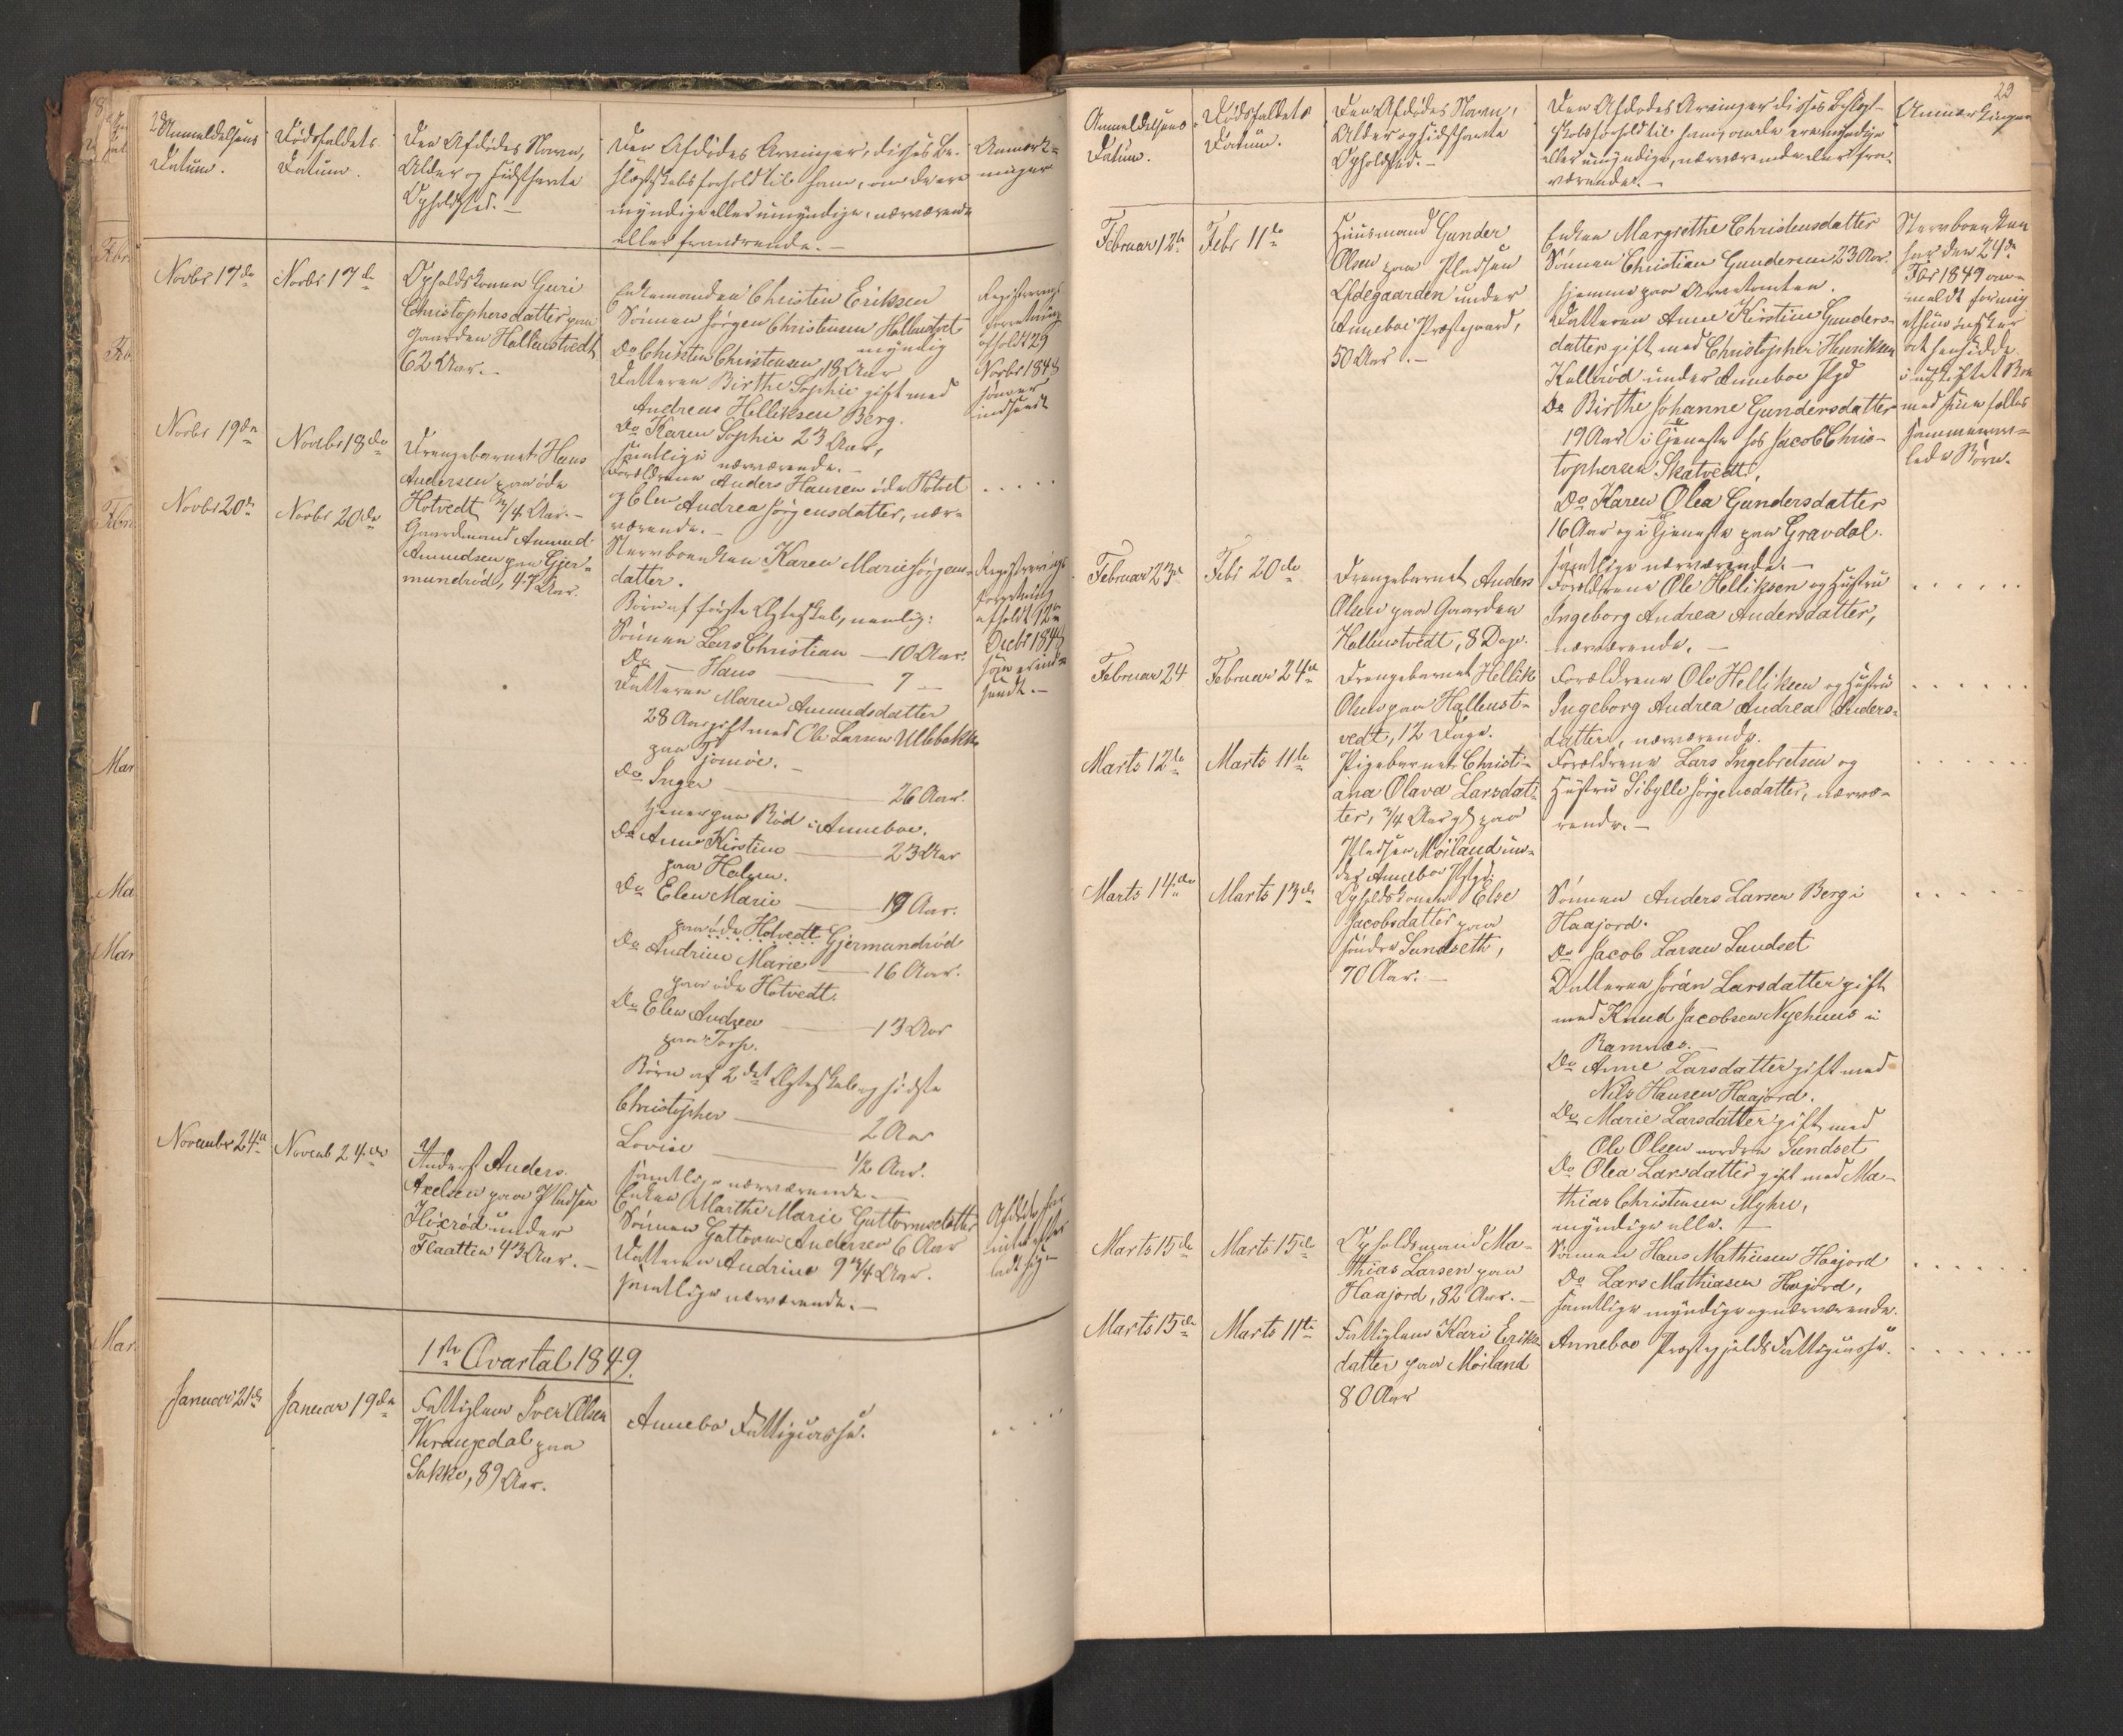 28
Anmeldelsens
Datum.
Dödsfaldets
Datum.
Den Afdödes Navn,
Alder og sidsthavte
Opholdssted.-
Den Afdödes Arvinger, disses Be-
slægtskabsforhold til ham, om de ere
myndige eller umyndige, nærværende
eller fraværende.-
Anmærk-
ninger
Novbr 17de
Novbr 17de
Opholdskonen Guri
Christophersdatter paa
Gaarden Hallenstvedt
62 Aar.-
Enkemanden Christen Eriksen
Sönnen Jörgen Christensen Hallenstvet
myndig
Do Christen Christensen 18 Aar
Datteren Birthe Sophie gift med
Andreas Helliksen Berg.
Do Karen Sophie 23 Aar,
samtlige nærværende.-
Registrerings
forretning
afholdt 29
Novbr 1848
som er
indsendt
Novbr 19de
Novbr 18de
Drengebarnet Hans
Andersen paa öde
Hotvedt 3/4 Aar.-
Forældrene Anders Hansen öde Hotvet
og Elen Andrea Jörgensdatter, nær-
værende.-
. . . . .
Novbr 20de
Novbr 20de
Gaardmand Amund
Amundsen paa Gjer-
mundröd, 47 Aar.
Stervboenken Karen Marie Jörgens-
datter.
Börn af förste Ægteskab, nemlig:
Sönnen Lars Christian - 10 Aar.
Do - Hans - 7 -
Datteren Maren Amundsdatter
28 Aar gift med Ole Larsen Ullebakke
paa Tjomöe.-
Do Inger - 26 Aar.
tjener paa Röd i Anneboe.
Do Anne Kirstine - 23 Aar
paa Holmen.
Do Elen Marie - 19 Aar.
paa öde Hotvedt Gjermundröd
Do Andrine Marie - 16 Aar.
paa öde Hotvedt.
Do Elen Andrea - 13 Aar
paa Torp.
Börn af 2det Ægteskab og sidste
Christopher - 2 Aar
Lovise - 1/2 Aar.
samtlige nærværende.-
Registrerings
forretning
afholdt 12te
Decbr 1848
som er ind-
sendt.-
November 24de
Novemb 24de
Inderst Anders
Axelsen paa Pladsen
Höxröd under
Flaatten 43 Aar.-
Enken Marthe Marie Guttormsdatter
Sönnen Guttorm Andersen 6 Aar
Datteren Andrine 9 3/4 Aar.
samtlige nærværende.-
Afdöde har
intet efter
ladt sig
1ste Qvartal 1849.
Januar 21de
Januar 19de
Fattiglem Iver Olsen
Wrangedal paa
Sakke, 89 Aar.
Annebo Fattigcasse.
. . . .
29
Anmeldelsens
Datum.
Dödsfaldets
Datum.
Den Afdödes Navn,
Alder og sidsthavte
Opholdssted.-
Den Afdödes Arvinger disses Beslægt-
skabsforhold til ham, om de ere myndige
eller umyndige, nærværende eller fra-
værende.-
Anmærkninger
Februar 12te
Febr 11te
Huusmand Gunder
Olsen paa Pladsen
Ödegaarden under
Anneboe Præstegaard,
50 Aar.-
Enken Margrethe Christensdatter
Sönnen Christian Gundersen 23 Aar.
hjemme paa Arvetomten.
Datteren Anne Kirstine Gunders-
datter gift med Christopher Henriksen
Kulleröd under Anneboe Pgd
Do Birthe Johanne Gundersdatter
19 Aar i Tjeneste hos Jacob Chris-
tophersen Skatvedt,
Do Karen Olea Gundersdatter
16 Aar og i Tjeneste paa Gravdal.
samtlige nærværende.-
Stervboenken
har den 24de
Febr 1849 an-
meldt for mig
at hun önsker
at hensidde
i uskiftet Boe
med sine fælles
sammenav-
lede Börn.
Februar 23de
Febr 20de
Drengebarnet Anders
Olsen paa Gaarden
Hallenstvedt, 8 Dage.
Forældrene Ole Helliksen og Hustru
Ingeborg Andrea Andersdatter,
nærværende.-
. . . . . .
Februar 24
Februar 24de
Drengebarnet Hellik
Olsen paa Hallenst-
vedt, 12 Dage.
Forældrene Ole Helliksen og Hustru
Ingeborg Andrea Andrea Anders-
datter, nærværende.
. . . . . .
Marts 12te
Marts 11te
Pigebarnet Christi-
ana Olava Larsdat-
ter, 3/4 Aar gl paa
Pladsen Möiland un-
der Anneboe Pstgd.
Forældrene Lars Ingebretsen og
Hustru Sibylle Jörgensdatter, nærvæ-
rende.-
. . . . . .
Marts 14de
Marts 13de
Opholdskonen Else
Jacobsdatter paa
söndre Sundseth,
70 Aar.-
Sönnen Anders Larsen Berg i
Haajord.
Do Jacob Larsen Sundset
Datteren Jöran Larsdatter gift
med Knud Jacobsen Nyehuus i
Ramnæs.-
Do Anne Larsdatter gift med
Nils Hansen Haajord.
Do Marie Larsdatter gift med
Ole Olsen nordre Sundset
Do Olea Larsdatter gift med Ma-
thias Christensen Myhre,
myndige alle.-
. . . . .
Marts 15de
Marts 15de
Opholdsmand Ma-
thias Larsen paa
Haajord, 82 Aar.-
Sönnen Hans Mathiesen Haajord
Do Lars Mathiasen Haajord,
samtlige myndige og nærværende.
. . . . . .
Marts 15de
Marts 11te
Fattiglem Kari Eriks-
datter paa Möiland
80 Aar
Anneboe Præstegjelds Fattigcasse.
. . . . . .